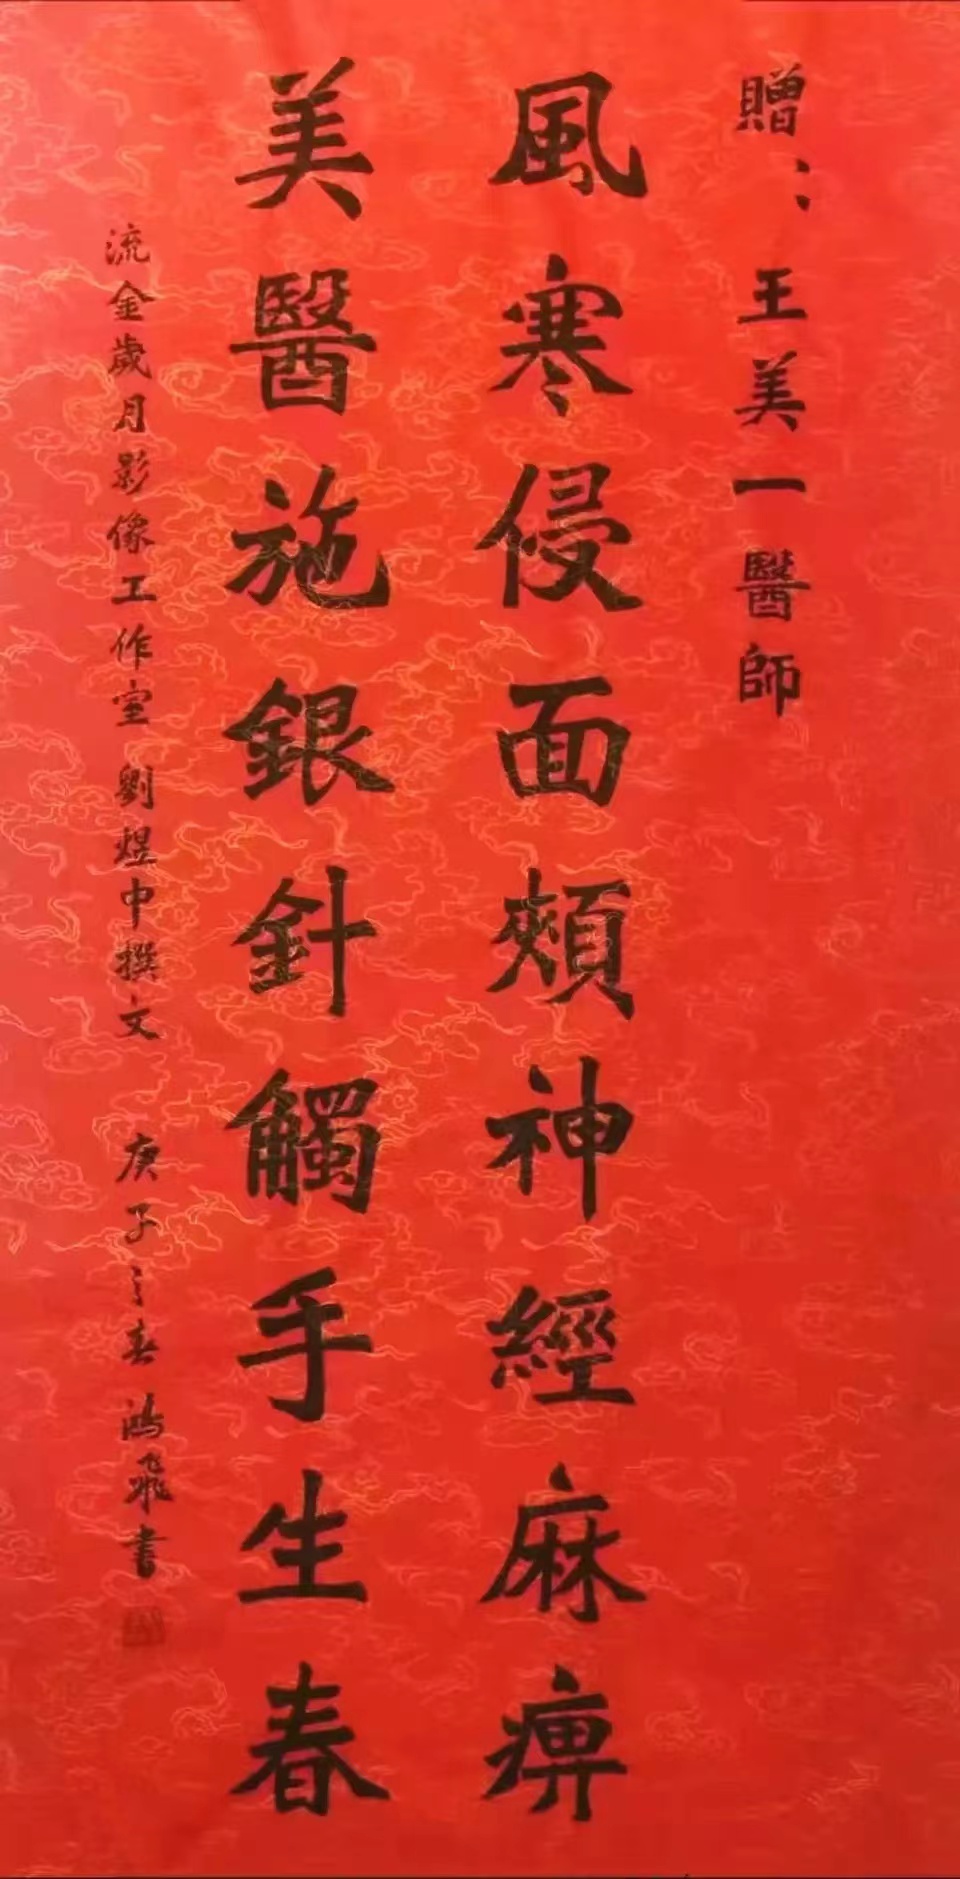 贈：王美一醫師
風寒侵面頰神經麻痹
美醫施銀針觸手生春
流金歲月影像工作室 劉煜中撰文 庚子之春 鴻飛書